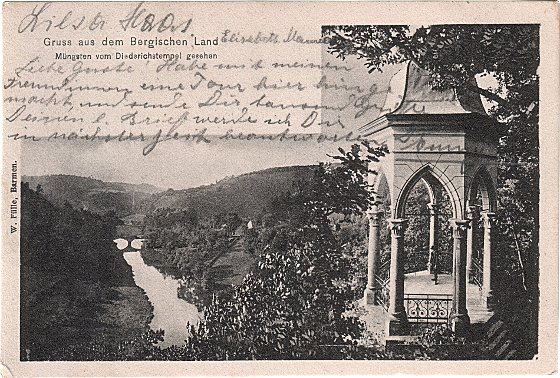 Gruss aus dem Bergischen Land
Müngsten vom Diederichstempel gesehen
Liebe Habe mit meinen
Freundinnen eine Tour hier hin ge
macht, und sende Dir tausend Grüße
Deinen l. Brief werde ich Dir
in nächster Zeit beantworten
W. Fülle, Barmen.